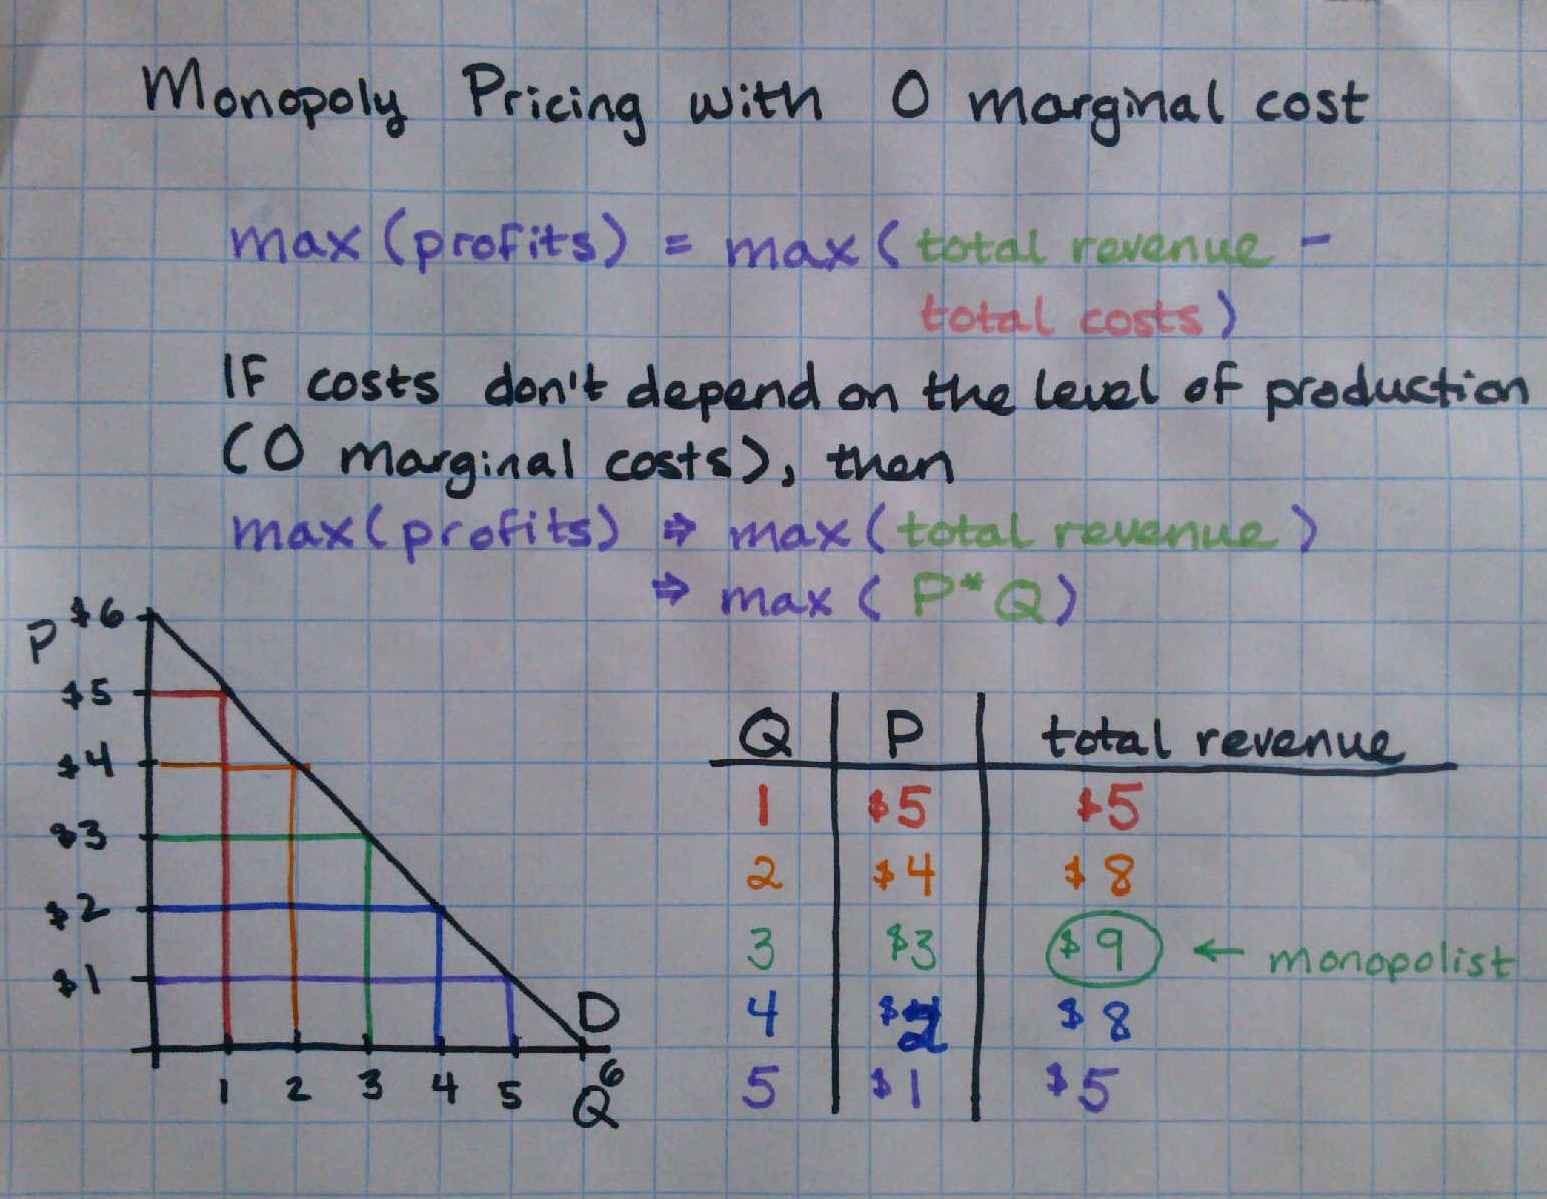 Monopoly Pricing with 0 marginal cost
max (profits) = max (total revenue -
total costs)
IF costs don't depend on the level of production
(0 marginal costs), then
max (profits) ⇒ max (total revenue)
⇒ max (P*Q)
P $6
$5
$4
$3
$2
$1
D
1 2 3 4 5 6
Q
Q P total revenue
1 $5 $5
2 $4 $8
3 $3 $9 ← monopolist
4 $2 $8
5 $1 $5